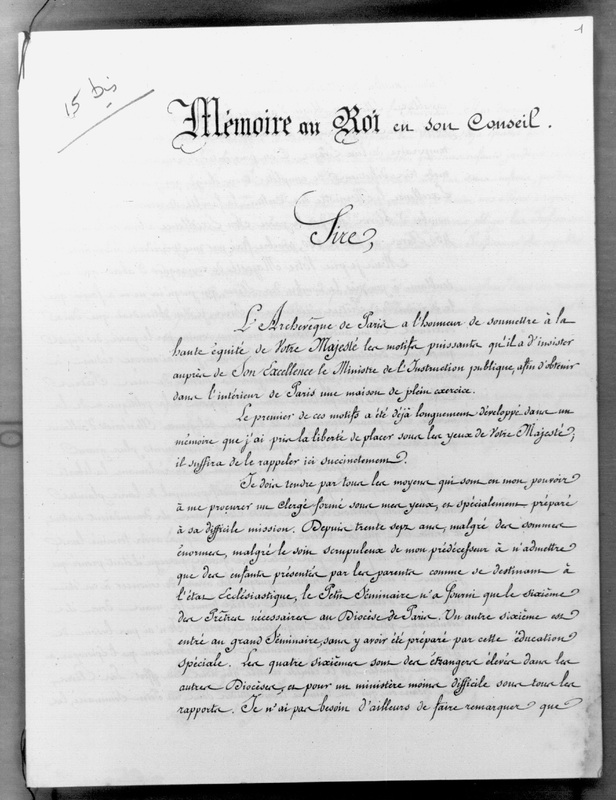 1
15 bis
Mémoire au Roi en son Conseil.
Sire,
L'Archevêque de Paris a l'honneur de soumettre à la
haute équité de Votre Majesté les motifs puissants qu'il a d'insister
auprès de Son Excellence le Ministre de l'Instruction publique, afin d'obtenir
dans l'intérieur de Paris une maison de plein exercice.
Le premier de ces motifs a été déjà longuement développé dans un
mémoire que j'ai pris la liberté de placer sous les yeux de Votre Majesté;
il suffira de le rappeler ici succinctement.
Je dois tendre par tous les moyens qui sont en mon pouvoir
à me procurer un clergé formé sous mes yeux, et spécialement préparé
à sa difficile mission. Depuis trente sept ans, malgré des sommes
énormes, malgré le soin scrupuleux de mon prédécesseur à n'admettre
que des enfants présentés par les parents comme se destinant à
l'état Ecclésiastique, le Petit Séminaire n'a fourni que le sixième
des Prêtres nécessaires au Diocèse de Paris. Un autre sixième est
entré au grand Séminaire, sans y avoir été préparé par cette éducation
spéciale. Les quatre sixièmes sont des étrangers élevés dans les
autres Diocèses, et pour un ministère moins difficile sous tous les
rapports. Je n'ai pas besoin d'ailleurs de faire remarquer que